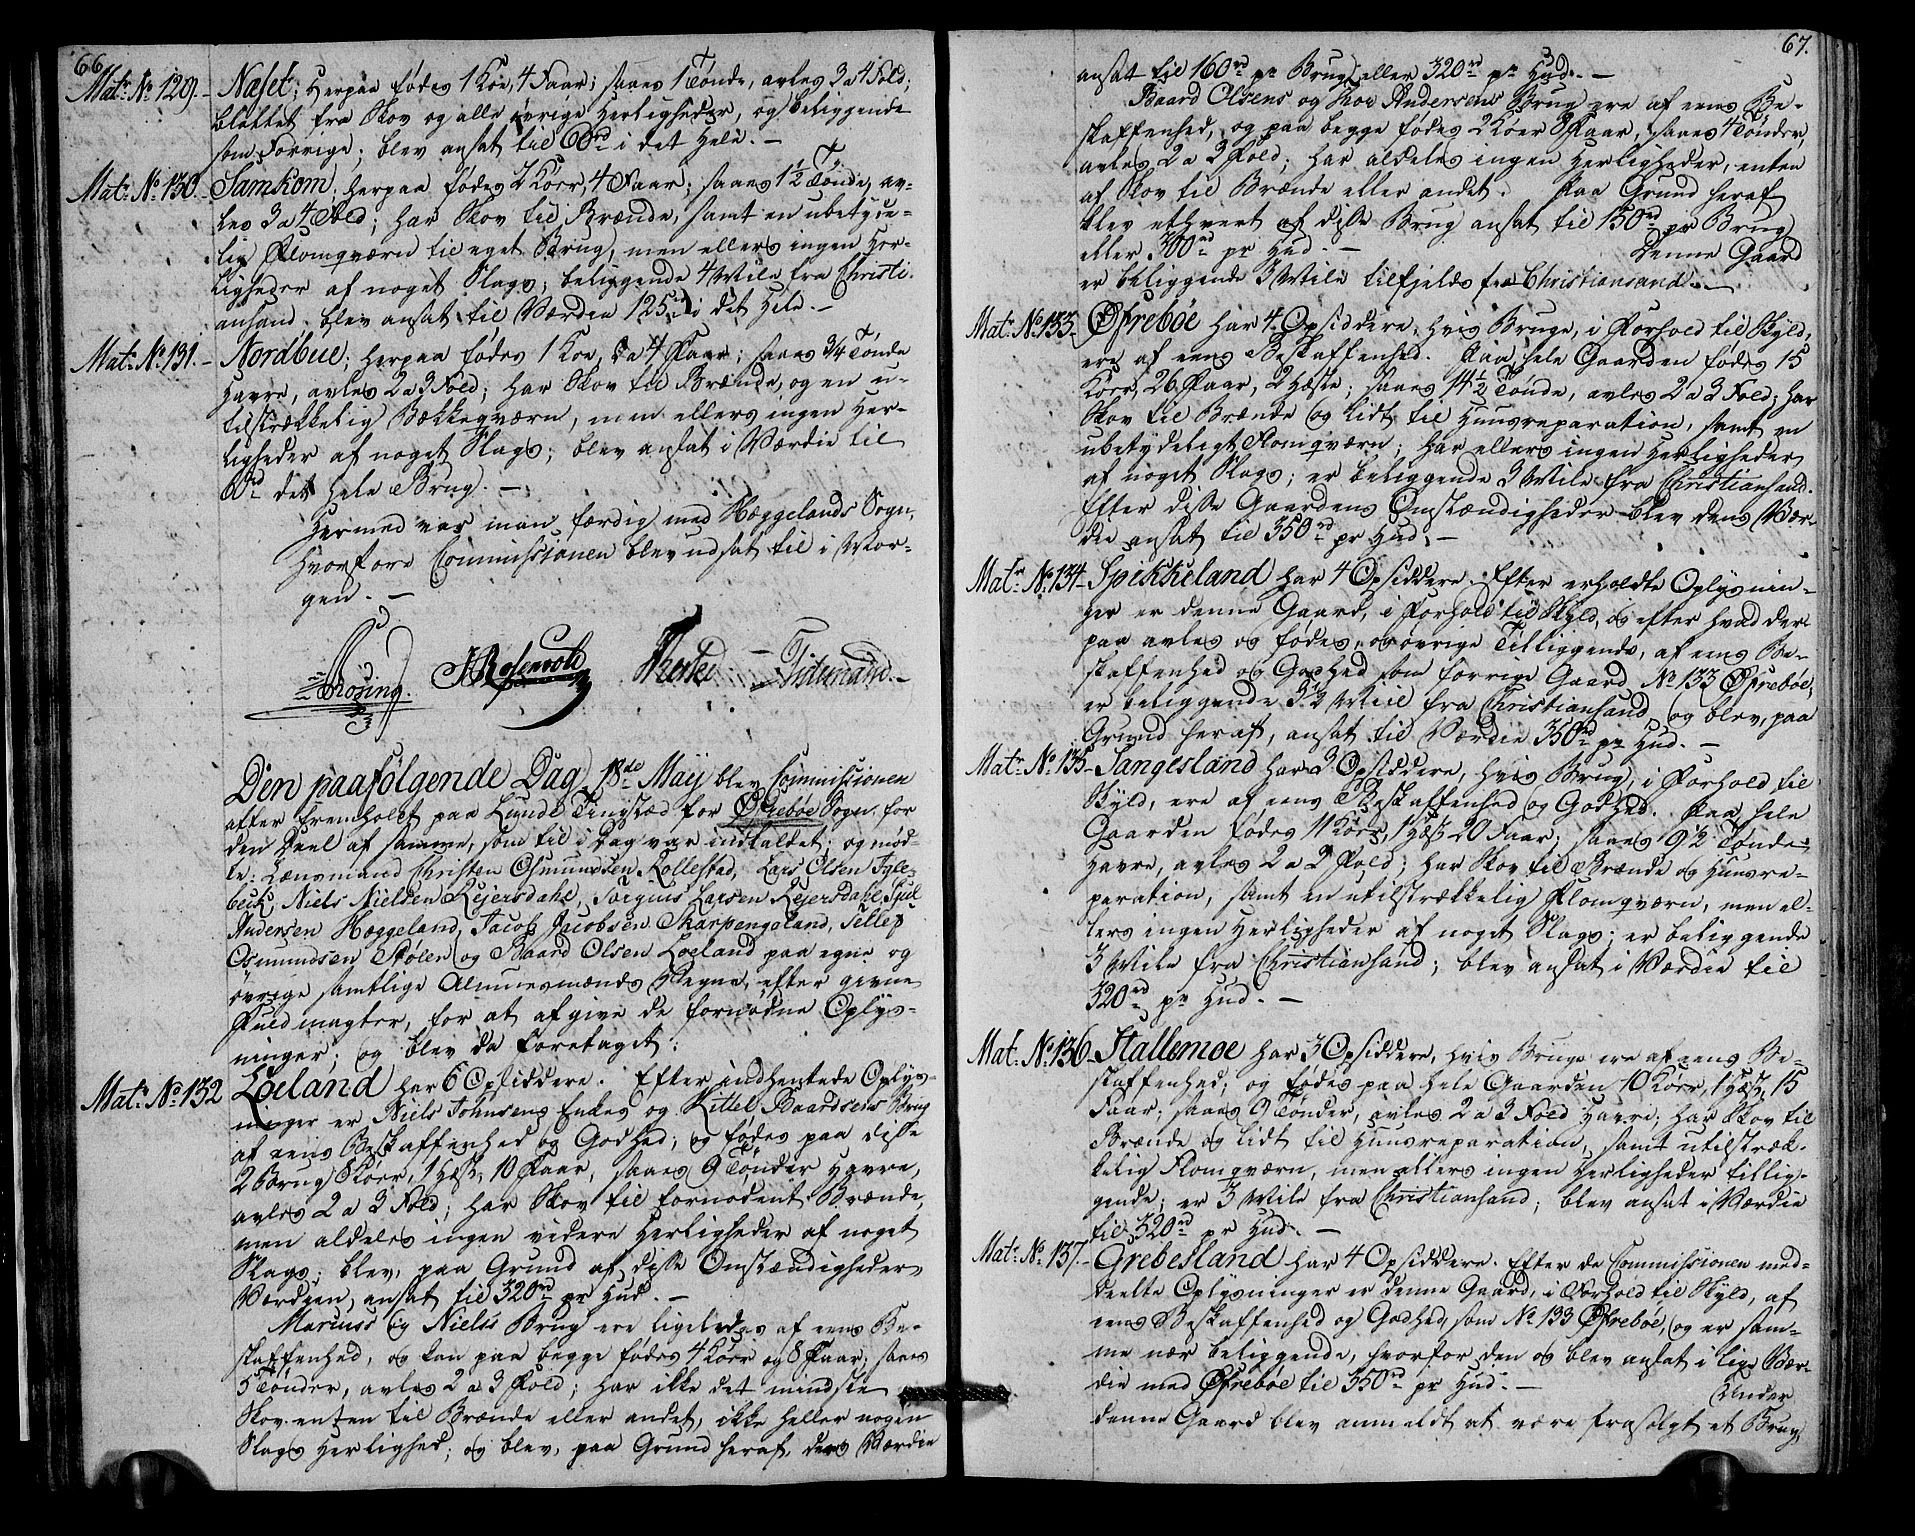 66.
Mat: No 129. Næset; herpaa fødes 1 Koe, 4 Faar; saaes 1 Tønde, avles 3 a 4 Fold;
blottet fra Skov og alle øvrige Herligheder, og beliggende
som Forrige; blev ansat til 60 rd i det hele. –
Mat: No 130. Samkom, herpaa fødes 2 Køer, 4 Faar; saaes 1½ Tønde, av-
les 3 a 4 Fold; har Skov til Brænde, samt en ubetyde-
lig Flomqværn til eget Brug, men ellers ingen Her-
ligheder af noget Slags; beliggende 4 Mile fra Christi-
ansand. blev ansat til Værdie 125 rd i det Hele. –
Mat: No 131. – Nordbue; herpaa fødes 1 Koe, 3 a 4 Faar; saaes 3/4 Tønde
Havre, avles 2 a 3 Fold; har Skov til Brænde, og en u-
tilstrækkelig Bækkeqværn, men ellers ingen Her-
ligheder af noget Slags; blev ansat i Værdie til
60 rd det hele Brug. –
Hermed var man færdig med Hæggelands Sogn,
hvorfore Commissionen blev udsat til i Mor-
gen. –
Rosing. JRosenvold Tidemand. –
Den paafølgende Dag, 18de Maij blev Commissionen
atter fremholdt paa Lunde Tingstæd for Øfrebøe Sogn, for
den Deel af samme, som til i Dag var indkaldet; og mød-
te: Lænsmand Christen Osmundsen Rollestad, Lars Olsen Fyle-
beck, Niels Nielsen Reiersdahl, Torgius Larsen Reiersdahl, Siul
Andersen Hæggeland, Jacob Jacobsen Skarpengeland, Tellef
Osmundsen Støien og Baard Olsen Loeland paa egne og
øvrige samtlige Almuesmænds Vegne, efter givne
Fuldmagter, for at afgive de fornødne Oplys-
ninger; og blev da foretaget:
Mat: No 132 Loeland har 6 Opsiddere. Efter indhentede Oplys-
ninger er Niels Johnsens Enkes og Kittel Baardsens Brug
af eens Beskaffenhed og Godhed; og fødes paa disse
2 Brug 8 Køer, 1 Hæst, 10 Faar, saaes 9 Tønder Havre,
avles 2 a 3 Fold; har Skov til fornødent Brænde,
men aldeles ingen videre Herligheder af noget
Slags; blev, paa Grund af disse Omstændigheder,
Værdien, ansat til 320 rd pr Hud. –
Mariuss og Nielss Brug ere ligeledes af eens Be-
skaffenhed, og kan paa begge fødes 4 Køer og 8 Faar; saaes
5 Tønder, avles 2 a 3 Fold; har ikke det mindste
Skov enten til Brænde eller andet, ikke heller nogen
Slags Herlighed; og blev, paa Grund heraf, dens Værdie
67.
ansat til 160 rd pr Brug, eller 320 rd pr Hud. –
Baard Olsens og Thor Andersens Brug ere af eens Be-
skaffenhed, og paa begge fødes 2 Køer 8 Faar, saaes 4 Tønder,
avles 2 a 3 Fold; har aldeles ingen Herligheder, enten
af Skov til Brænde eller andet. Paa Grund heraf
blev ethvert af disse Brug ansat til 150 rd pr Brug
eller 300 rd pr Hud. – Denne Gaard
er beliggende 3 Mile tilfjelds fra Christiansand. –
Mat: No 133. Øfrebøe har 4 Opsiddere, hvis Bruge, i Forhold til Skyld,
ere af eens Beskaffenhed. Paa hele Gaarden fødes 15
Køer, 26 Faar, 2 Hæste; saaes 14½ Tønde, avles 2 a 3 Fold; har
Skov til Brænde og lidt til Huusreparation, samt en
ubetydeligt Flomqværn; har ellers ingen Herligheder
af noget Slags; er beliggende 3 Mile fra Christiansand.
Efter disse Gaardens Omstændigheder blev dens Vær-
die ansat til 350 rd pr Hud. –
Mat: No 134 – Spikkeland har 4 Opsiddere. Efter erholdte Oplysnin-
ger er denne Gaard, i Forhold til Skyld, og efter hvad der
paa avles og fødes, og øvrige Tilliggende, af eens Be-
skaffenhed og Godhed som forrige Gaard No 133 Øfrebøe;
er beliggende 3½ Miil fra Christiansand, og blev, paa
Grund heraf, ansat til Værdie 350 rd pr Hud. –
Mat: No 135 – Sangesland har 3 Opsiddere, hvis Brug, i Forhold til
Skyld, ere af eens Beskaffenhed og Godhed. Paa hele
Gaarden fødes 11 Køer, 1 Hæst 20 Faar; saaes 9½ Tønde
Havre, avles 2 a 3 Fold; har Skov til Brænde og Huusre-
paration, samt en utilstrækkelig Flomqværn, men el-
lers ingen Herligheder af noget Slags; er beliggende
3 Mile fra Christiansand; blev ansat i Værdie til
320 rd pr Hud. –
Mat: No 136 – Stallemoe har 3 Opsiddere, hvis Bruge ere af eens Be-
skaffenhed; og fødes paa hele Gaarden 10 Køer, 1 Hæst, 15
Faar; saaes 9 Tønder, avles 2 a 3 Fold Havre; har Skov til
Brænde og lidt til Huusreparation, samt utilstræk-
kelig Flomqværn, men ellers ingen Herligheder tillig-
gende; er 3 Mile fra Christiansand; blev ansat i Værdie
til 320 rd pr Hud. –
Mat: No 137. – Grebesland har 4 Opsiddere. Efter de Commissionen med-
deelte Oplysninger er denne Gaard, i Forhold til Skyld, af
eens Beskaffenhed og Godhed, som No 133 Øfrebøe, og er sam-
me nær beliggende, hvorfor den og blev ansat i lige Vær-
die med Øfrebøe til 350 rd pr Hud. – Under
denne Gaard blev anmeldt at være frasolgt et Brug,